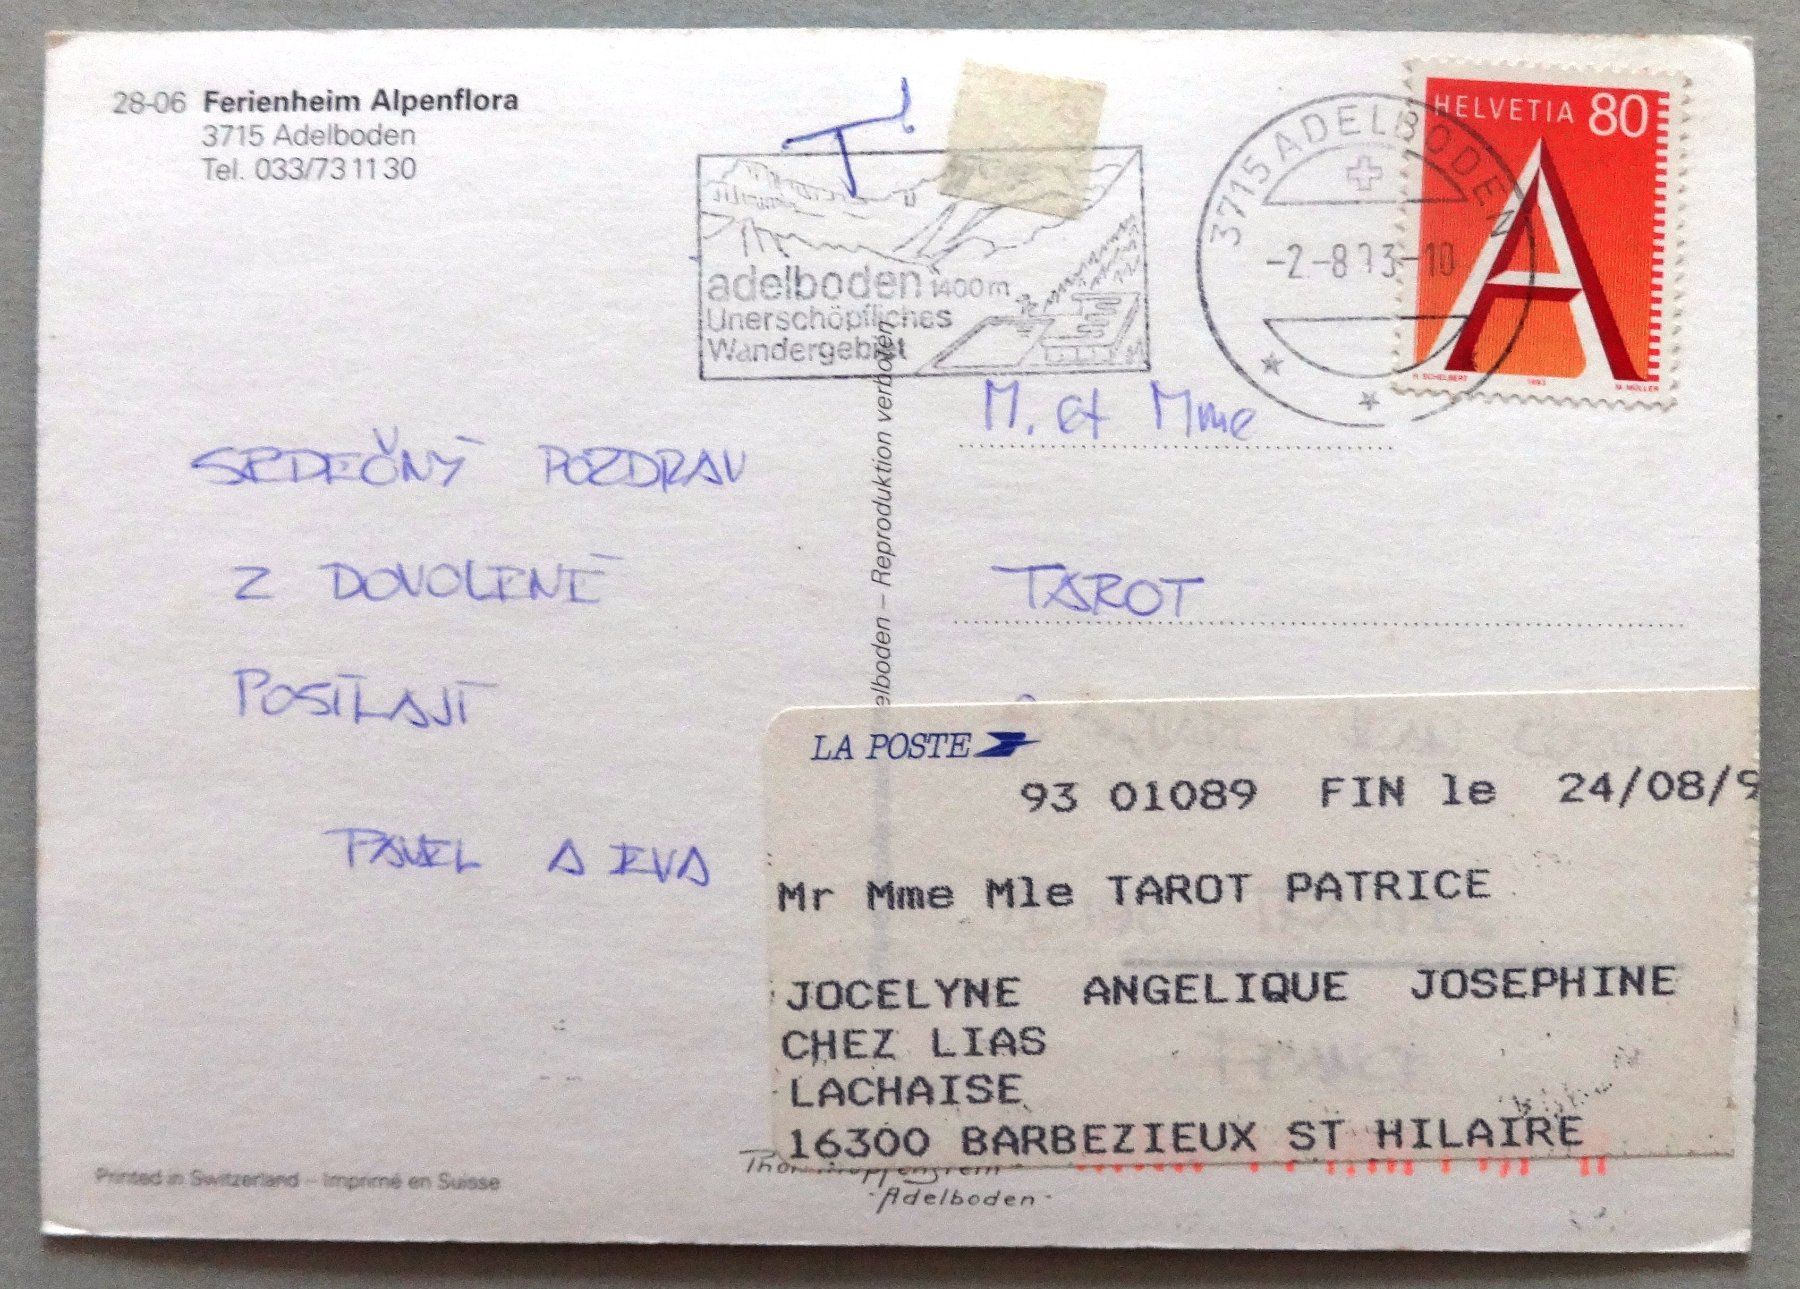 28-06 Ferienheim Alpenflora
3715 Adelboden
Tel. 033/73 11 30
T
adelboden 1400 m
Unerschöpfliches
Wandergebiet
3715 ADELBODEN
-2.-8.93-10
HELVETIA 80
A
H. SCHELBERT 1993 M. MÜLLER
SRDEČNÝ POZDRAV
Z DOVOLENÉ
POSÍLAJÍ
PAVEL A EVA
elboden – Reproduktion verboten
M. et Mme
TAROT
LA POSTE
93 01089 FIN le 24/08/9
Mr Mme Mle TAROT PATRICE
JOCELYNE ANGELIQUE JOSEPHINE
CHEZ LIAS
LACHAISE
16300 BARBEZIEUX ST HILAIRE
Adelboden
Printed in Switzerland – Imprimé en Suisse